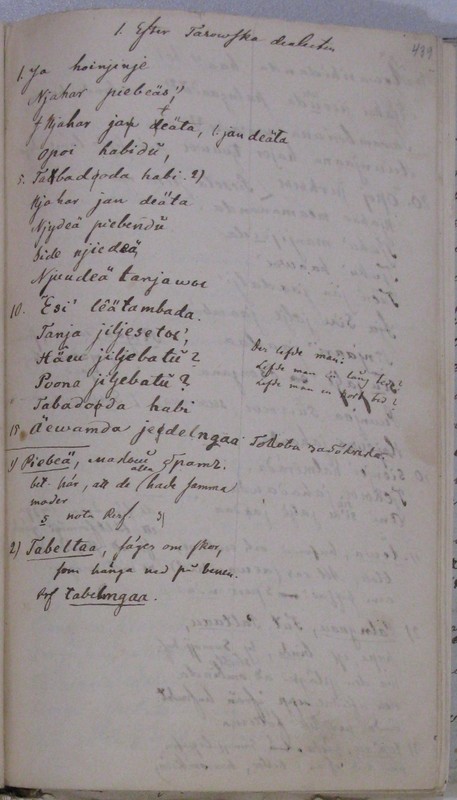 489
1. Efter Tarowska dialecten
1. Ja hoinjinje
Njahar piebeäs¹⁾
Njahar jan deäta, l. jan deäta
Opoi habidü,
5. Tabadoda habi. 2)
Njahar jan deäta
Njydeä piebendü
Side njiedeä,
Njuudeä tanjawoc
10. Esi' leätambada.
Tanja jiljesetoc',
Häeu jiljebatü?
Poona jiljebatü?
Tabadoda habi
15. Äewamda jedelngaa
Der lefde man:
Lefde man en lång tid?
Lefde man en kort tid?
1) Piebeä, малой братъ.
bet. här, att de hade samma
moder
nota
2) Tabeltaa, säges om skor,
som hänga ned på benen.
Prf tabelngaa.